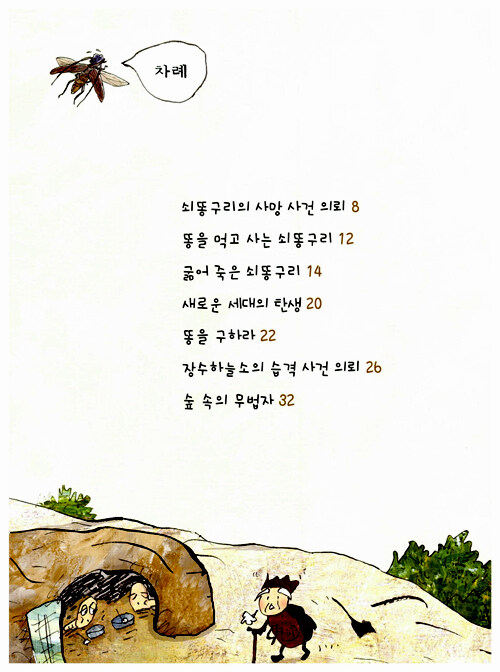 차례
쇠똥구리의 사망 사건 의뢰 8
똥을 먹고 사는 쇠똥구리 12
굶어 죽은 쇠똥구리 14
새로운 세대의 탄생 20
똥을 구하라 22
장수하늘소의 습격 사건 의뢰 26
숲 속의 무법자 32